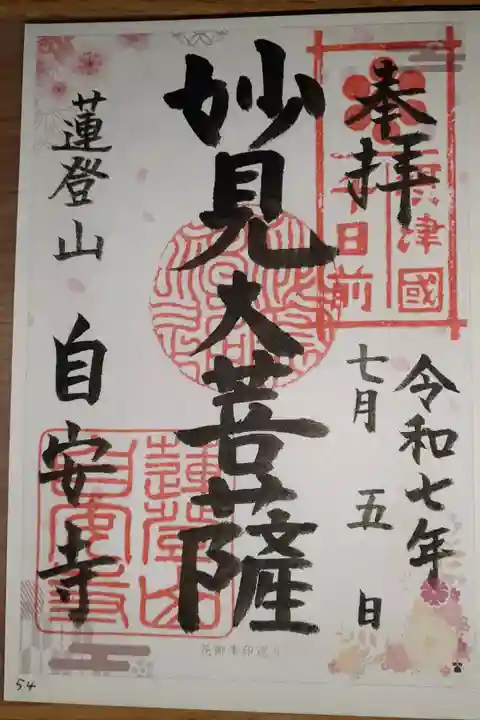 奉拝
摂津國
千日前
令和七年
七月五日
妙見大菩薩
蓮登山
自安寺
蓮登山
自安寺
花御朱印巡り
54